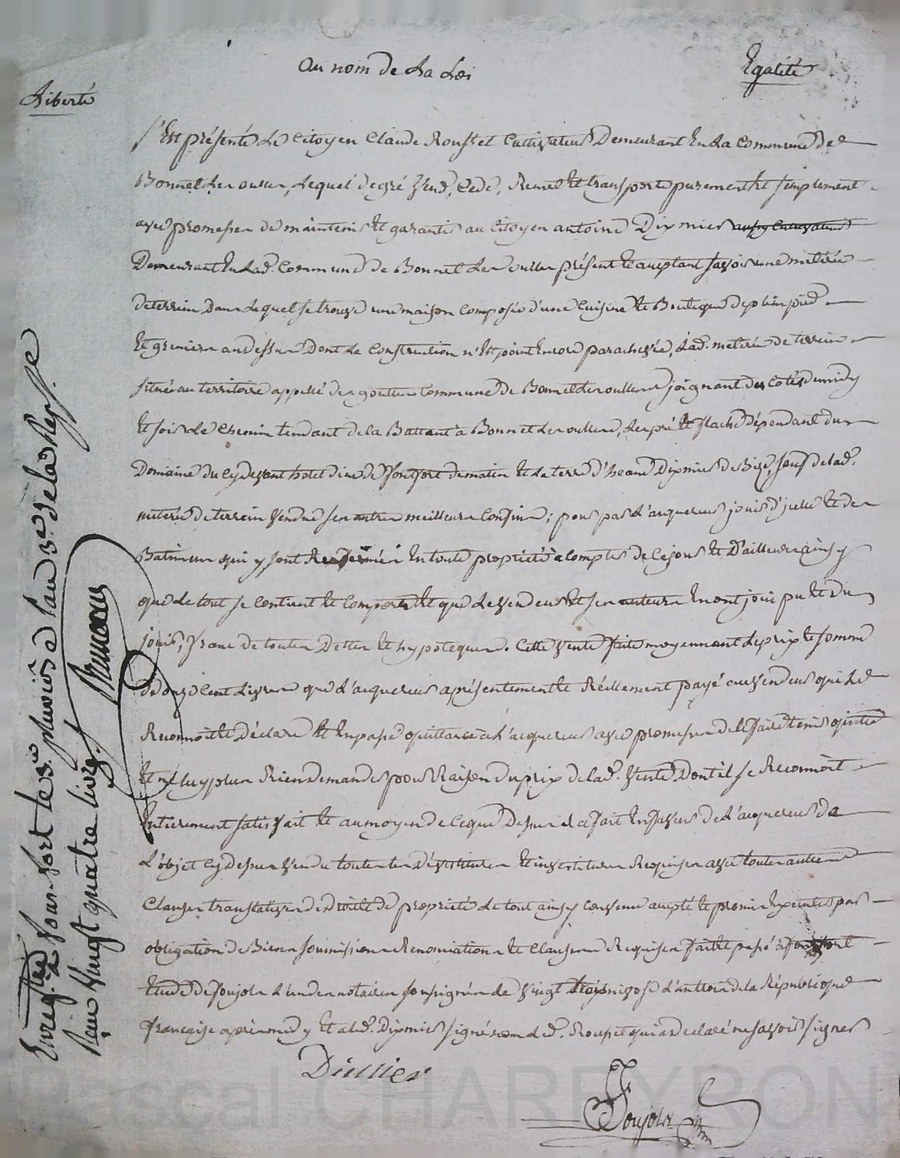 Au nom de La Loi
Liberté
Egalité
S'Est présenté Le Citoyen Claude Rousset Cultivateur Demeurant En La Commune de
Bonnet Les oulles, Lequel de gré Vend, Cede, Remet Et transporte purement Et simplement
avec promesse de maintenir Et garantir au Citoyen antoine Dixmier
Demeurant En Lad. Commune de Bonnet Les oulles présent Et acceptant savoir une méterée
de terrein dans Lequel se trouve une maison Composée d'une Cuisine Et Boutique
Et greniers au dessus Dont La Construction n'Est point Encore parachevée, Lad. meterée de terrein
situé au territoire appellé des gouttes Commune de Bonnet Les oulles joignant des cotés de midy
Et soir Le Chemin tendant de la Battant à Bonnet Les oulles, Les pré Et flache dépendant du
Domaine du cy devant hotel dieu de de matin Et La terre d' Dixmier de Bize, sauf de lad.
meterée de terrein Vendue ses autres meilleurs Confins; pour par L'acquereur jouir d'icelle Et des
Batiments qui y sont En toute propriété a Compter de Ce jour Et D'ailleurs ainsy
que Le tout se Contient Et Comporte Et que Le Vendeur Et ses auteurs En ont joui pu Et du
jouir, franc de toutes Dettes Et hypoteques. Cette Vente faite moyennant Le prix Et somme
de douze Cent Livres que L'acquereur a présentement Et Réellement payé au Vendeur qui Le
Reconnoit Et Déclare Et En passe quittance à L'acquereur avec promesse de L'En faire tenir quitte
Et ne Luy plus Rien demander pour Raison du prix de lad. Vente Dont il se Reconnoit
Entierement satisfait Et au moyen de Ce que Dessus il a fait En faveur de L'acquereur de
L'objet cy dessus Vendu toutes les Dévestitures Et investitures Requises avec toutes autres
Clauses translatives de droits de propriété Le tout ainsy Convenu accepté Et promis Executer par
obligation de Biens Soumissions Renonciations Et Clauses Requises fait Et passé a
Etude de Soujols L'un des notaires soussignés Le Vingt nivose L'an trois de la République
française après midy Et a led. Dixmier signé non led. Rousset qui a declaré ne savoir signer
Dixmier
Soujols
Enreg.tré a Four-fort le 3e pluviose l'an 3e de la Rep.
Reçu Vingt quatre livres
Pascal CHAREYRON